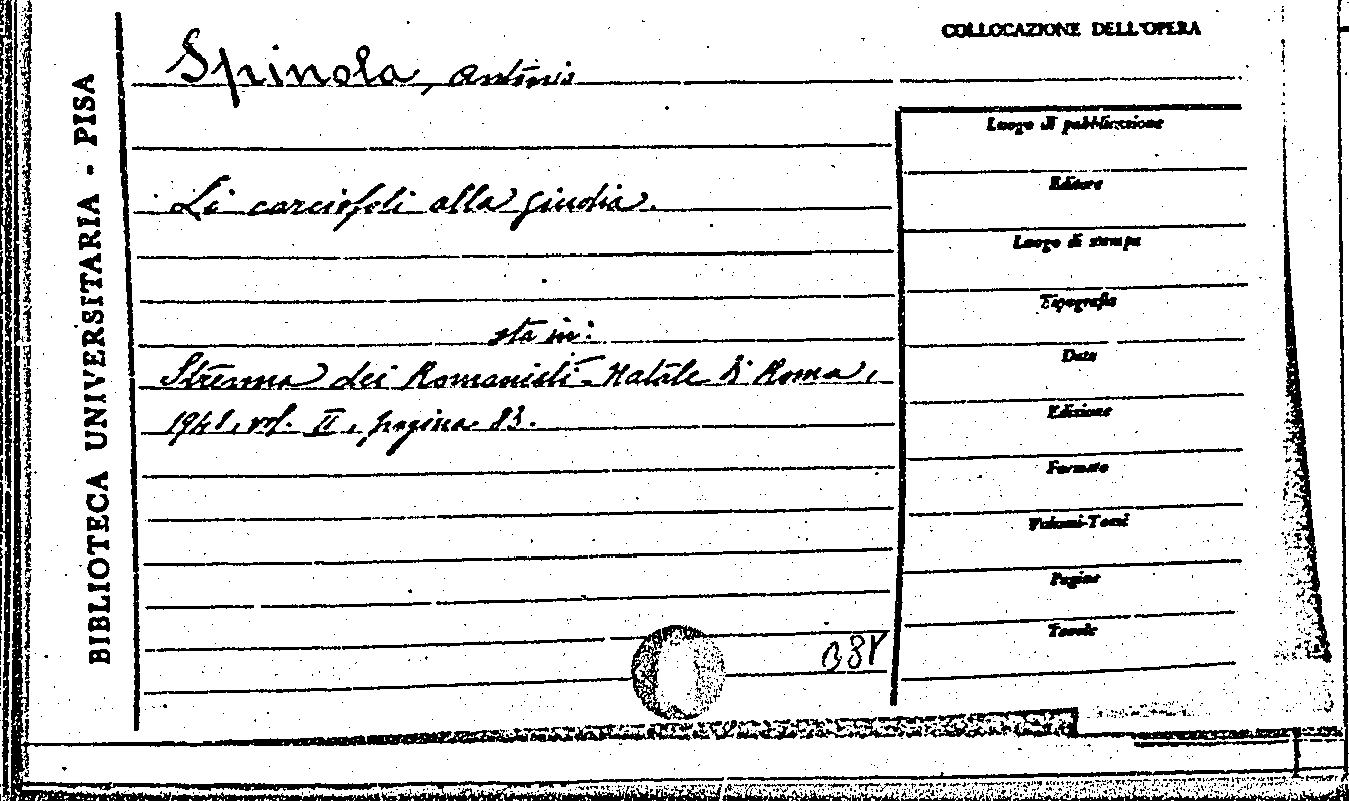 BIBLIOTECA UNIVERSITARIA - PISA
COLLOCAZIONE DELL'OPERA
Spinola, Antonio
Luogo di pubblicazione
Editore
Li carciofoli alla giudia.
Luogo di stampa
Tipografia
sta in:
Data
Strenna dei Romanisti - Natale di Roma,
Edizione
vol. II, pagina 83.
Formato
Volumi-Tomi
Pagine
Tavole